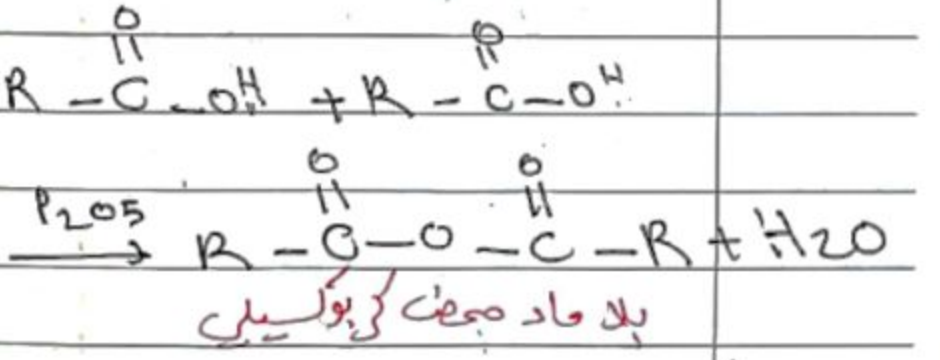 O O
|| ||
R - C - OH + R - C - OH
O O
|| ||
P2O5 → R - C - O - C - R + H2O
بلا ماء حمض كربوكسيلي